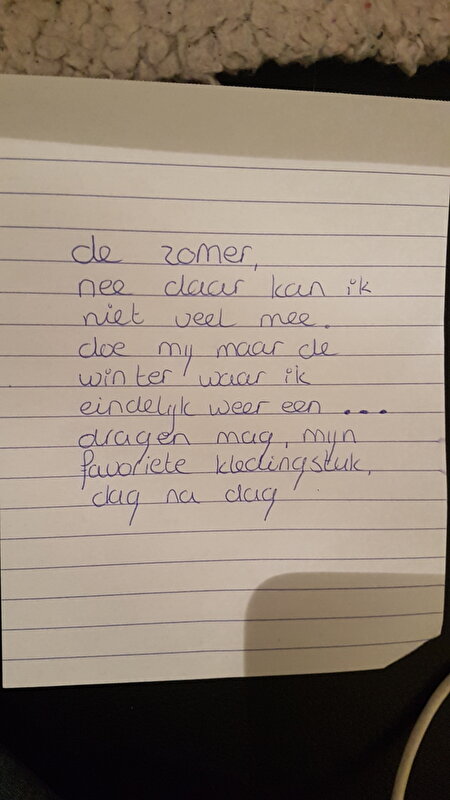 de zomer,
nee daar kan ik
niet veel mee.
doe mij maar de
winter waar ik
eindelijk weer een ...
dragen mag, mijn
favoriete kledingstuk,
dag na dag